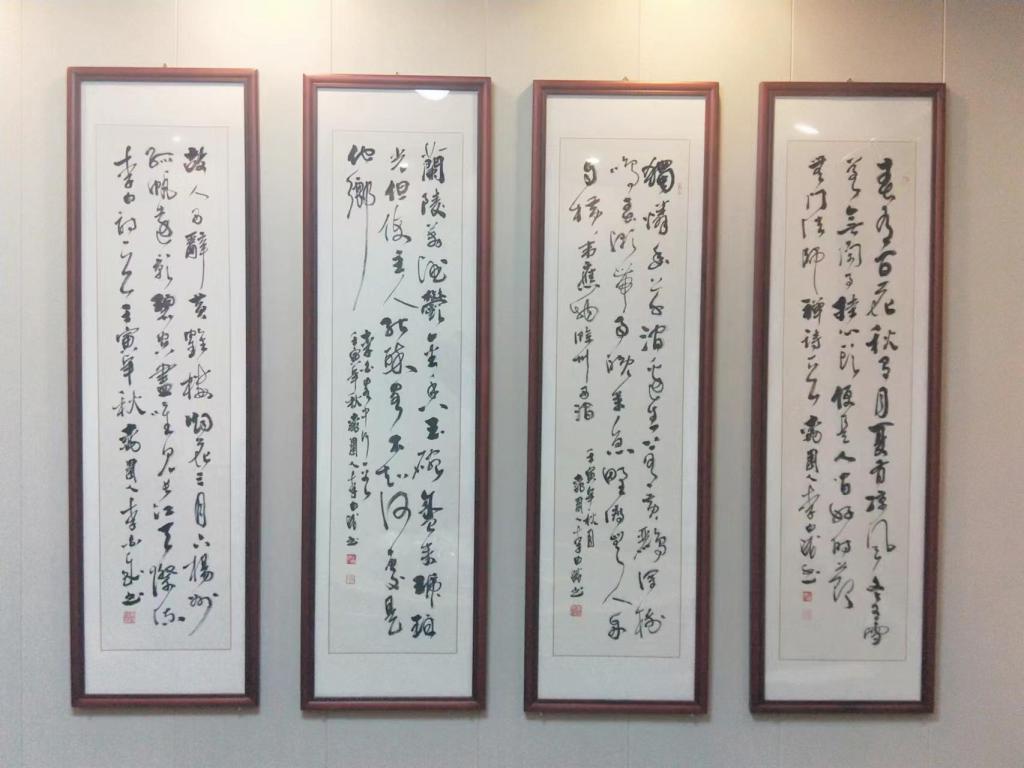 春有百花秋有月夏有涼風冬有雪
若無閑事挂心頭便是人間好時節
無門法師禅詩一首
獨憐幽草澗邊生上有黃鸝深樹
鳴春潮帶雨晚來急野渡無人舟
自橫韋應物滁州西澗
壬寅年秋月
蘭陵美酒鬱金香玉碗盛來琥珀
光但使主人能醉客不知何處是
他鄉
李白客中行一首
壬寅年秋
故人西辭黃鶴樓烟花三月下揚州
孤帆遠影碧空盡唯見長江天際流
李白詩一首壬寅年秋